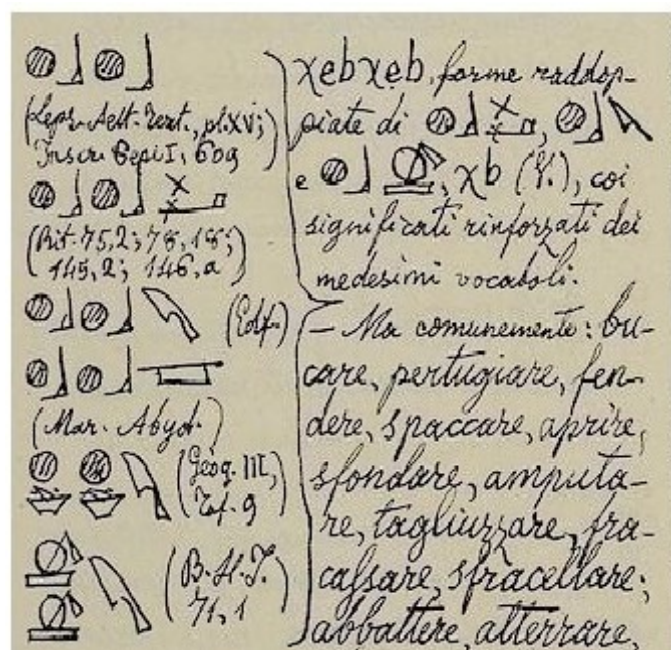 (Leps. Aelt. Text., pl. XV;
Inscr. Bepi I, 60g)
(Rit. 75,2; 78,18;
145,2; 146,a)
(Edf.)
(Mar. Abyd.)
(Geog. III,
Taf. 9)
(B.H.I.
71,1)
χebχeb, forme raddop-
piate di
e χb (V.), coi
significati rinforzati dei
medesimi vocaboli.
— Ma comunemente: bu-
care, pertugiare, fen-
dere, spaccare, aprire,
sfondare, amputa-
re, tagliuzzare, fra-
cassare, sfracellare;
abbattere, atterrare,